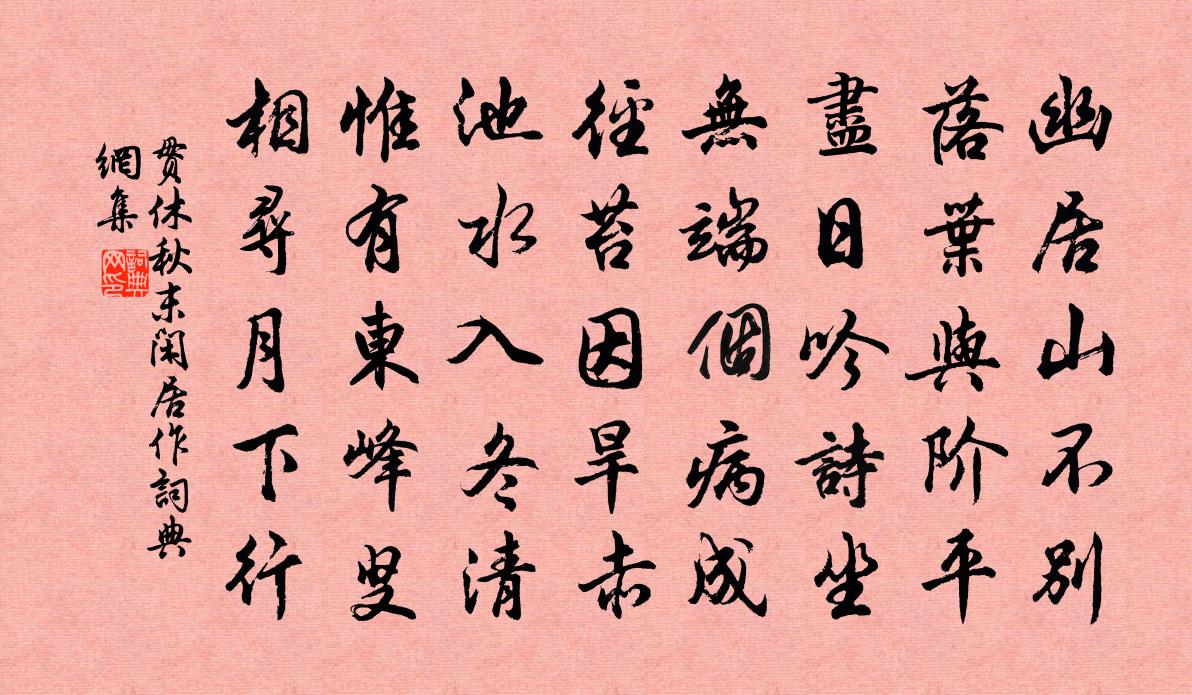 幽居山不别
落葉與阶平
盡日吟詩坐
無端個病成
徑苔因旱赤
池水入冬清
惟有東峰叟
相尋月下行
贯休秋末閑居作詞典
網集
詞典
网印